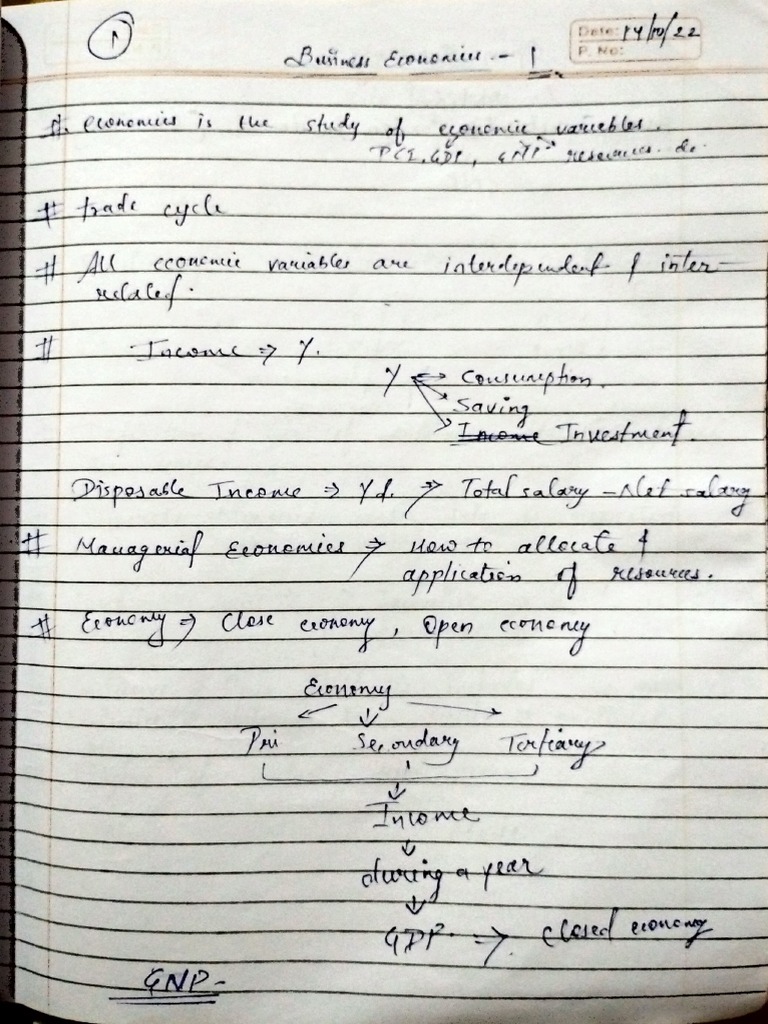 1
Date: 14/10/22
P. No:
Business Economics - 1
# Economics is the study of economic variables.
PCI, GDP, GNP resources. etc.
# trade cycle
# All economic variables are interdependent & inter-
related.
# Income ⇒ Y.
Y ⇒ Consumption.
Saving
Income Investment.
Disposable Income ⇒ Yd. ⇒ Total salary - Net salary
# Managerial Economics ⇒ How to allocate &
application of resources.
# Economy ⇒ Close economy, Open economy
Economy
Pri Secondary Tertiary
Income
during a year
GDP ⇒ Closed economy
GNP -